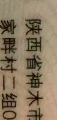 陕西省神木市
家畔村二组0